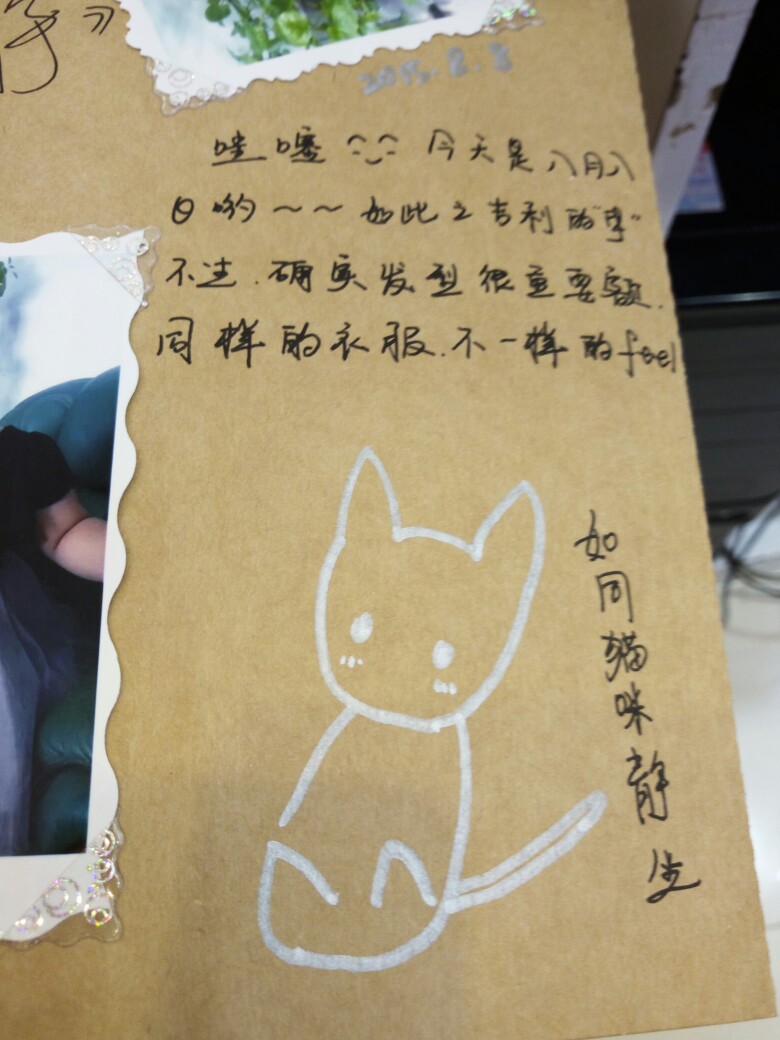 2015.8.8
哇噻 今天是八月八
日哟~~如此之吉利的"事"
不过.确实发型很重要额.
同样的衣服.不一样的feel
如同猫咪静坐